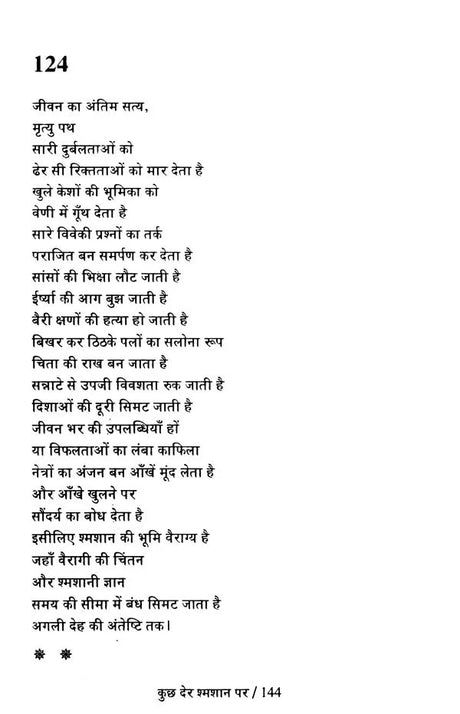 124
जीवन का अंतिम सत्य,
मृत्यु पथ
सारी दुर्बलताओं को
ढेर सी रिक्तताओं को मार देता है
खुले केशों की भूमिका को
वेणी में गूँथ देता है
सारे विवेकी प्रश्नों का तर्क
पराजित बन समर्पण कर देता है
सांसों की भिक्षा लौट जाती है
ईर्ष्या की आग बुझ जाती है
बैरी क्षणों की हत्या हो जाती है
बिखर कर ठिठके पलों का सलोना रूप
चिता की राख बन जाता है
सन्नाटे से उपजी विवशता रुक जाती है
दिशाओं की दूरी सिमट जाती है
जीवन भर की उपलब्धियाँ हों
या विफलताओं का लंबा काफिला
नेत्रों का अंजन बन आँखें मूंद लेता है
और आँखे खुलने पर
सौंदर्य का बोध देता है
इसीलिए श्मशान की भूमि वैराग्य है
जहाँ वैरागी की चिंतन
और श्मशानी ज्ञान
समय की सीमा में बंध सिमट जाता है
अगली देह की अंतेष्टि तक।
❋ ❋
कुछ देर श्मशान पर / 144